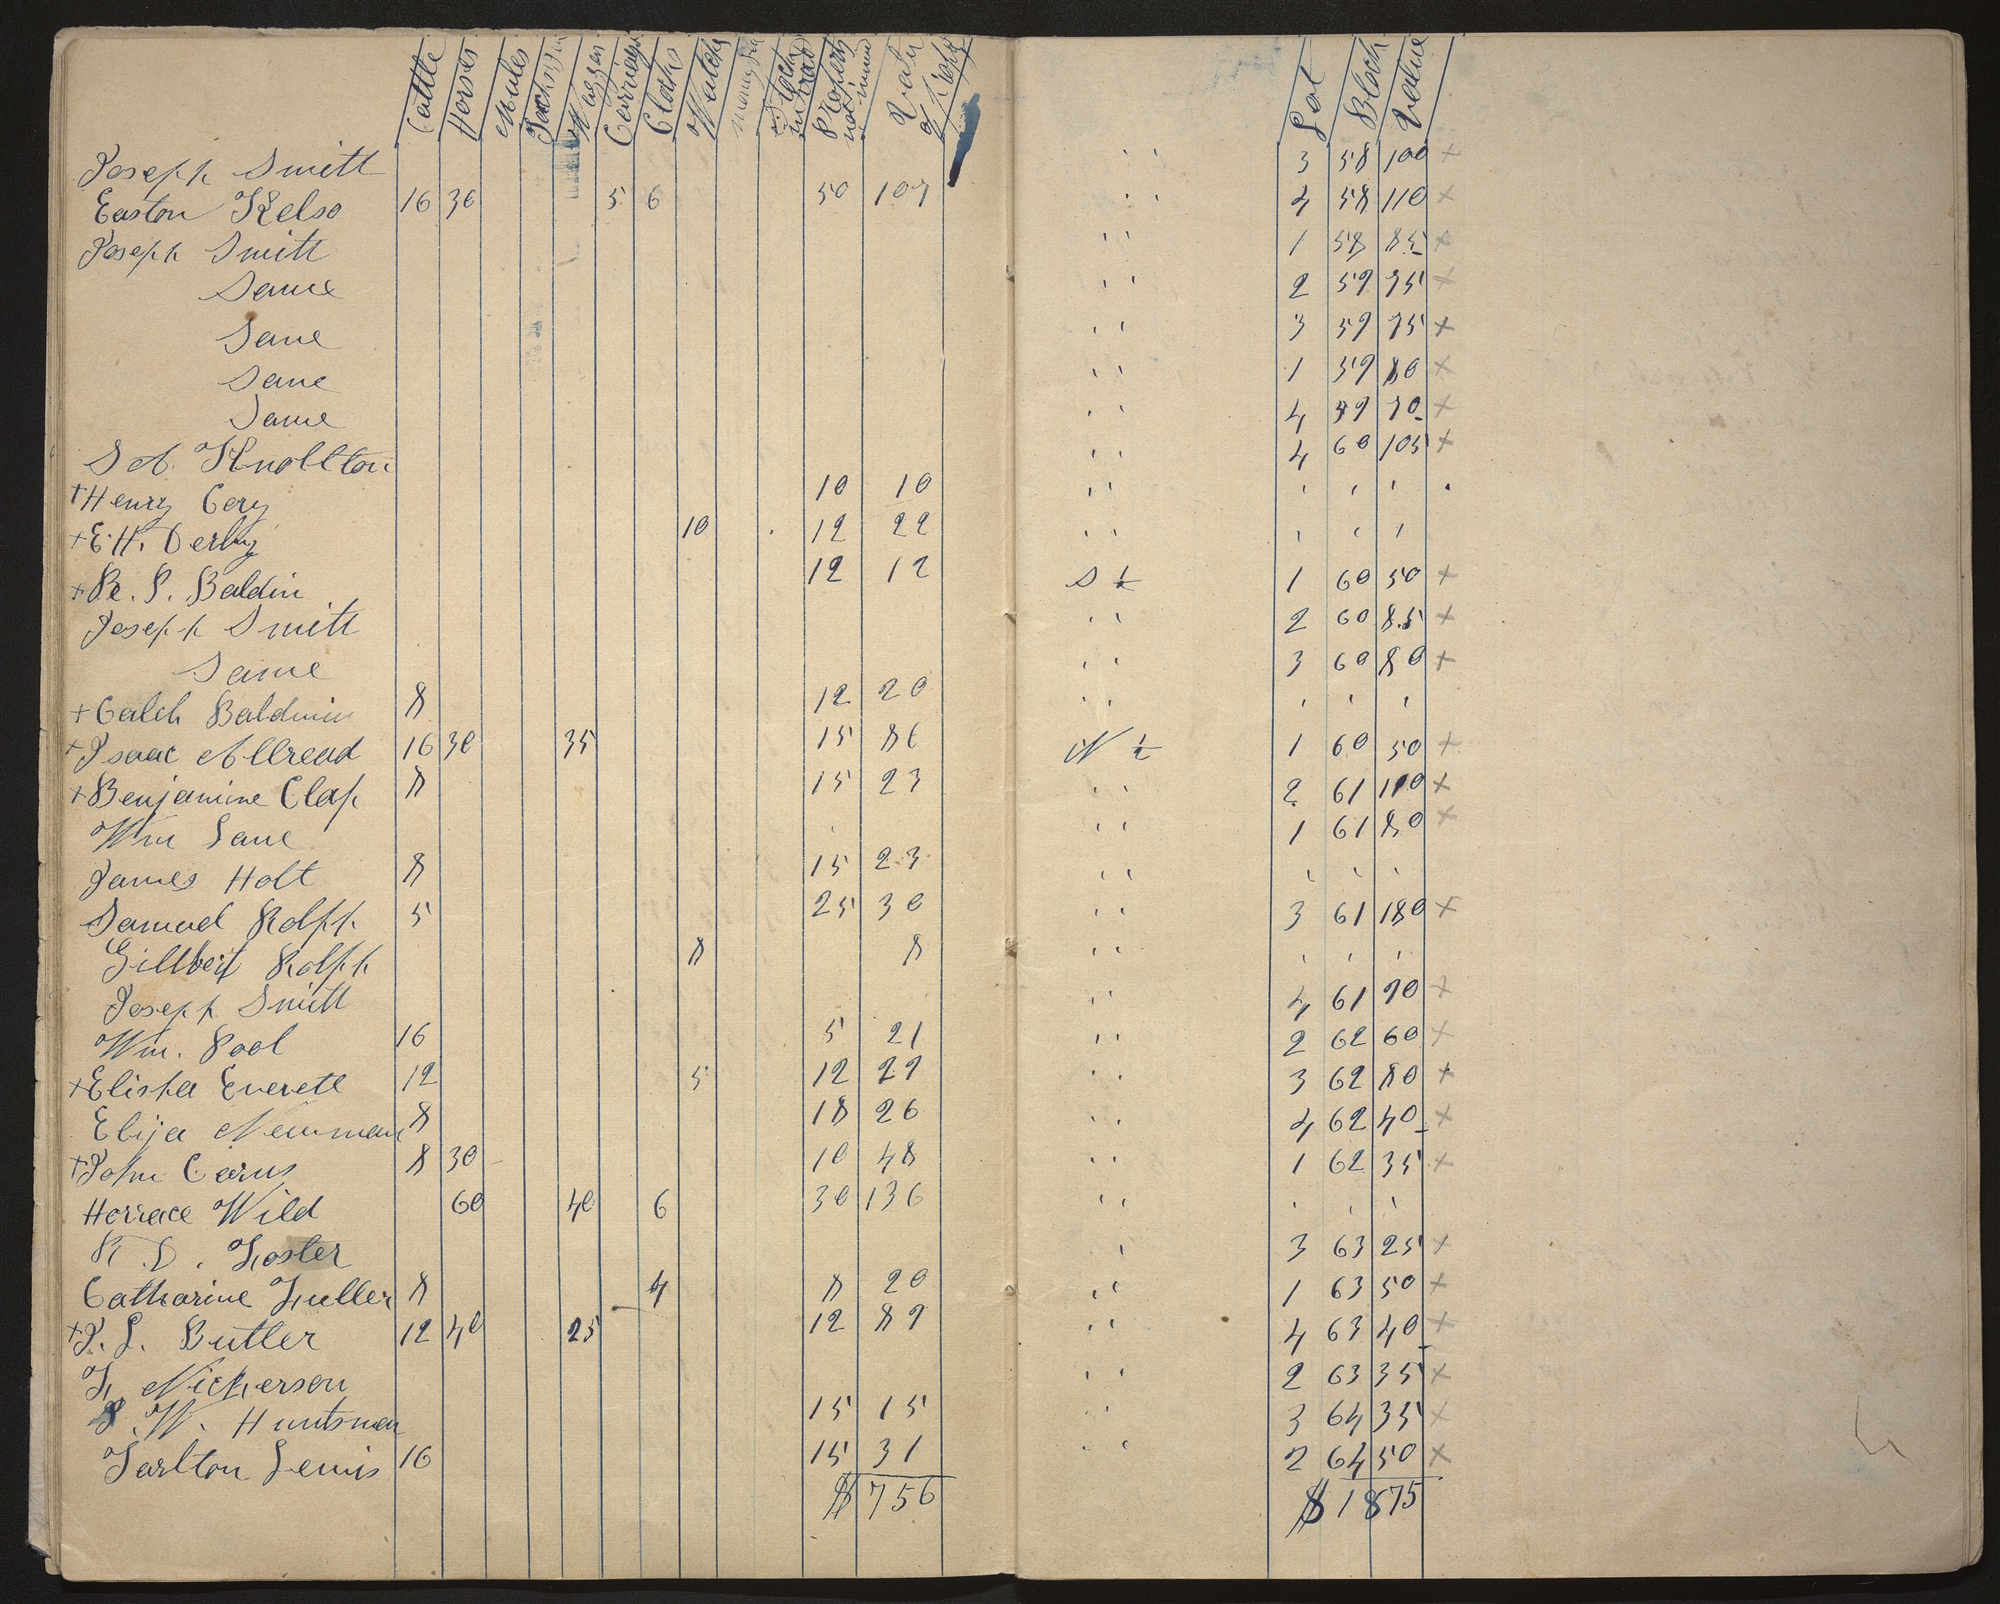 Cattle Horses Mules Jacks Waggon Carriage Clocks Watch money Stock in trad Property not inum Valu of prop Lot Block Value
Joseph Smitt ' ' 3 58 100 x
Easton Kelso 16 30 5 6 50 107 ' ' 4 58 110 x
Joseph Smitt ' ' 1 58 85 x
Same ' ' 2 59 75 x
Same ' ' 3 59 75 x
Same ' ' 1 59 80 x
Same ' ' 4 59 70 x
S A. Knollton ' ' 4 60 105 x
+ Henry Cery 10 10 ' ' ' ' '
+ E. H. Derby 10 12 22 ' ' ' ' '
+ Baldin 12 12 S ½ 1 60 50 x
Joseph Smitt ' ' 2 60 85 x
Same ' ' 3 60 80 x
+ Caleb Baldwin 8 12 20 ' ' ' ' '
+ Isaac Allread 16 30 35 15 86 N ½ 1 60 50 x
+ Benjamine Clap 8 15 23 ' ' 2 61 110 x
Wm Lane ' ' 1 61 80 x
James Holt 8 15 23 ' ' ' ' '
Samuel Rolph 5 25 30 ' ' 3 61 180 x
Gillbert Rolph 8 8 ' ' ' ' '
Joseph Smitt ' ' 4 61 70 x
Wm. Pool 16 5 21 ' ' 2 62 60 x
+ Elisha Everett 12 5 12 29 ' ' 3 62 80 x
Elija Newman 8 18 26 ' ' 4 62 40 x
+ John Carns 8 30 10 48 ' ' 1 62 35 x
Horrace Wild 60 40 6 30 136 ' ' ' ' '
R. D. Foster ' 3 63 25 x
Catharine Fuller 8 4 8 20 ' ' 1 63 50 x
+ J. L. Butler 12 40 25 12 89 ' ' 4 63 40 x
F. Nickerson ' ' 2 63 35 x
P. W. Huntsman 15 15 ' ' 3 64 35 x
Tarlton Lewis 16 15 31 ' ' 2 64 50 x
$ 756 $ 1875